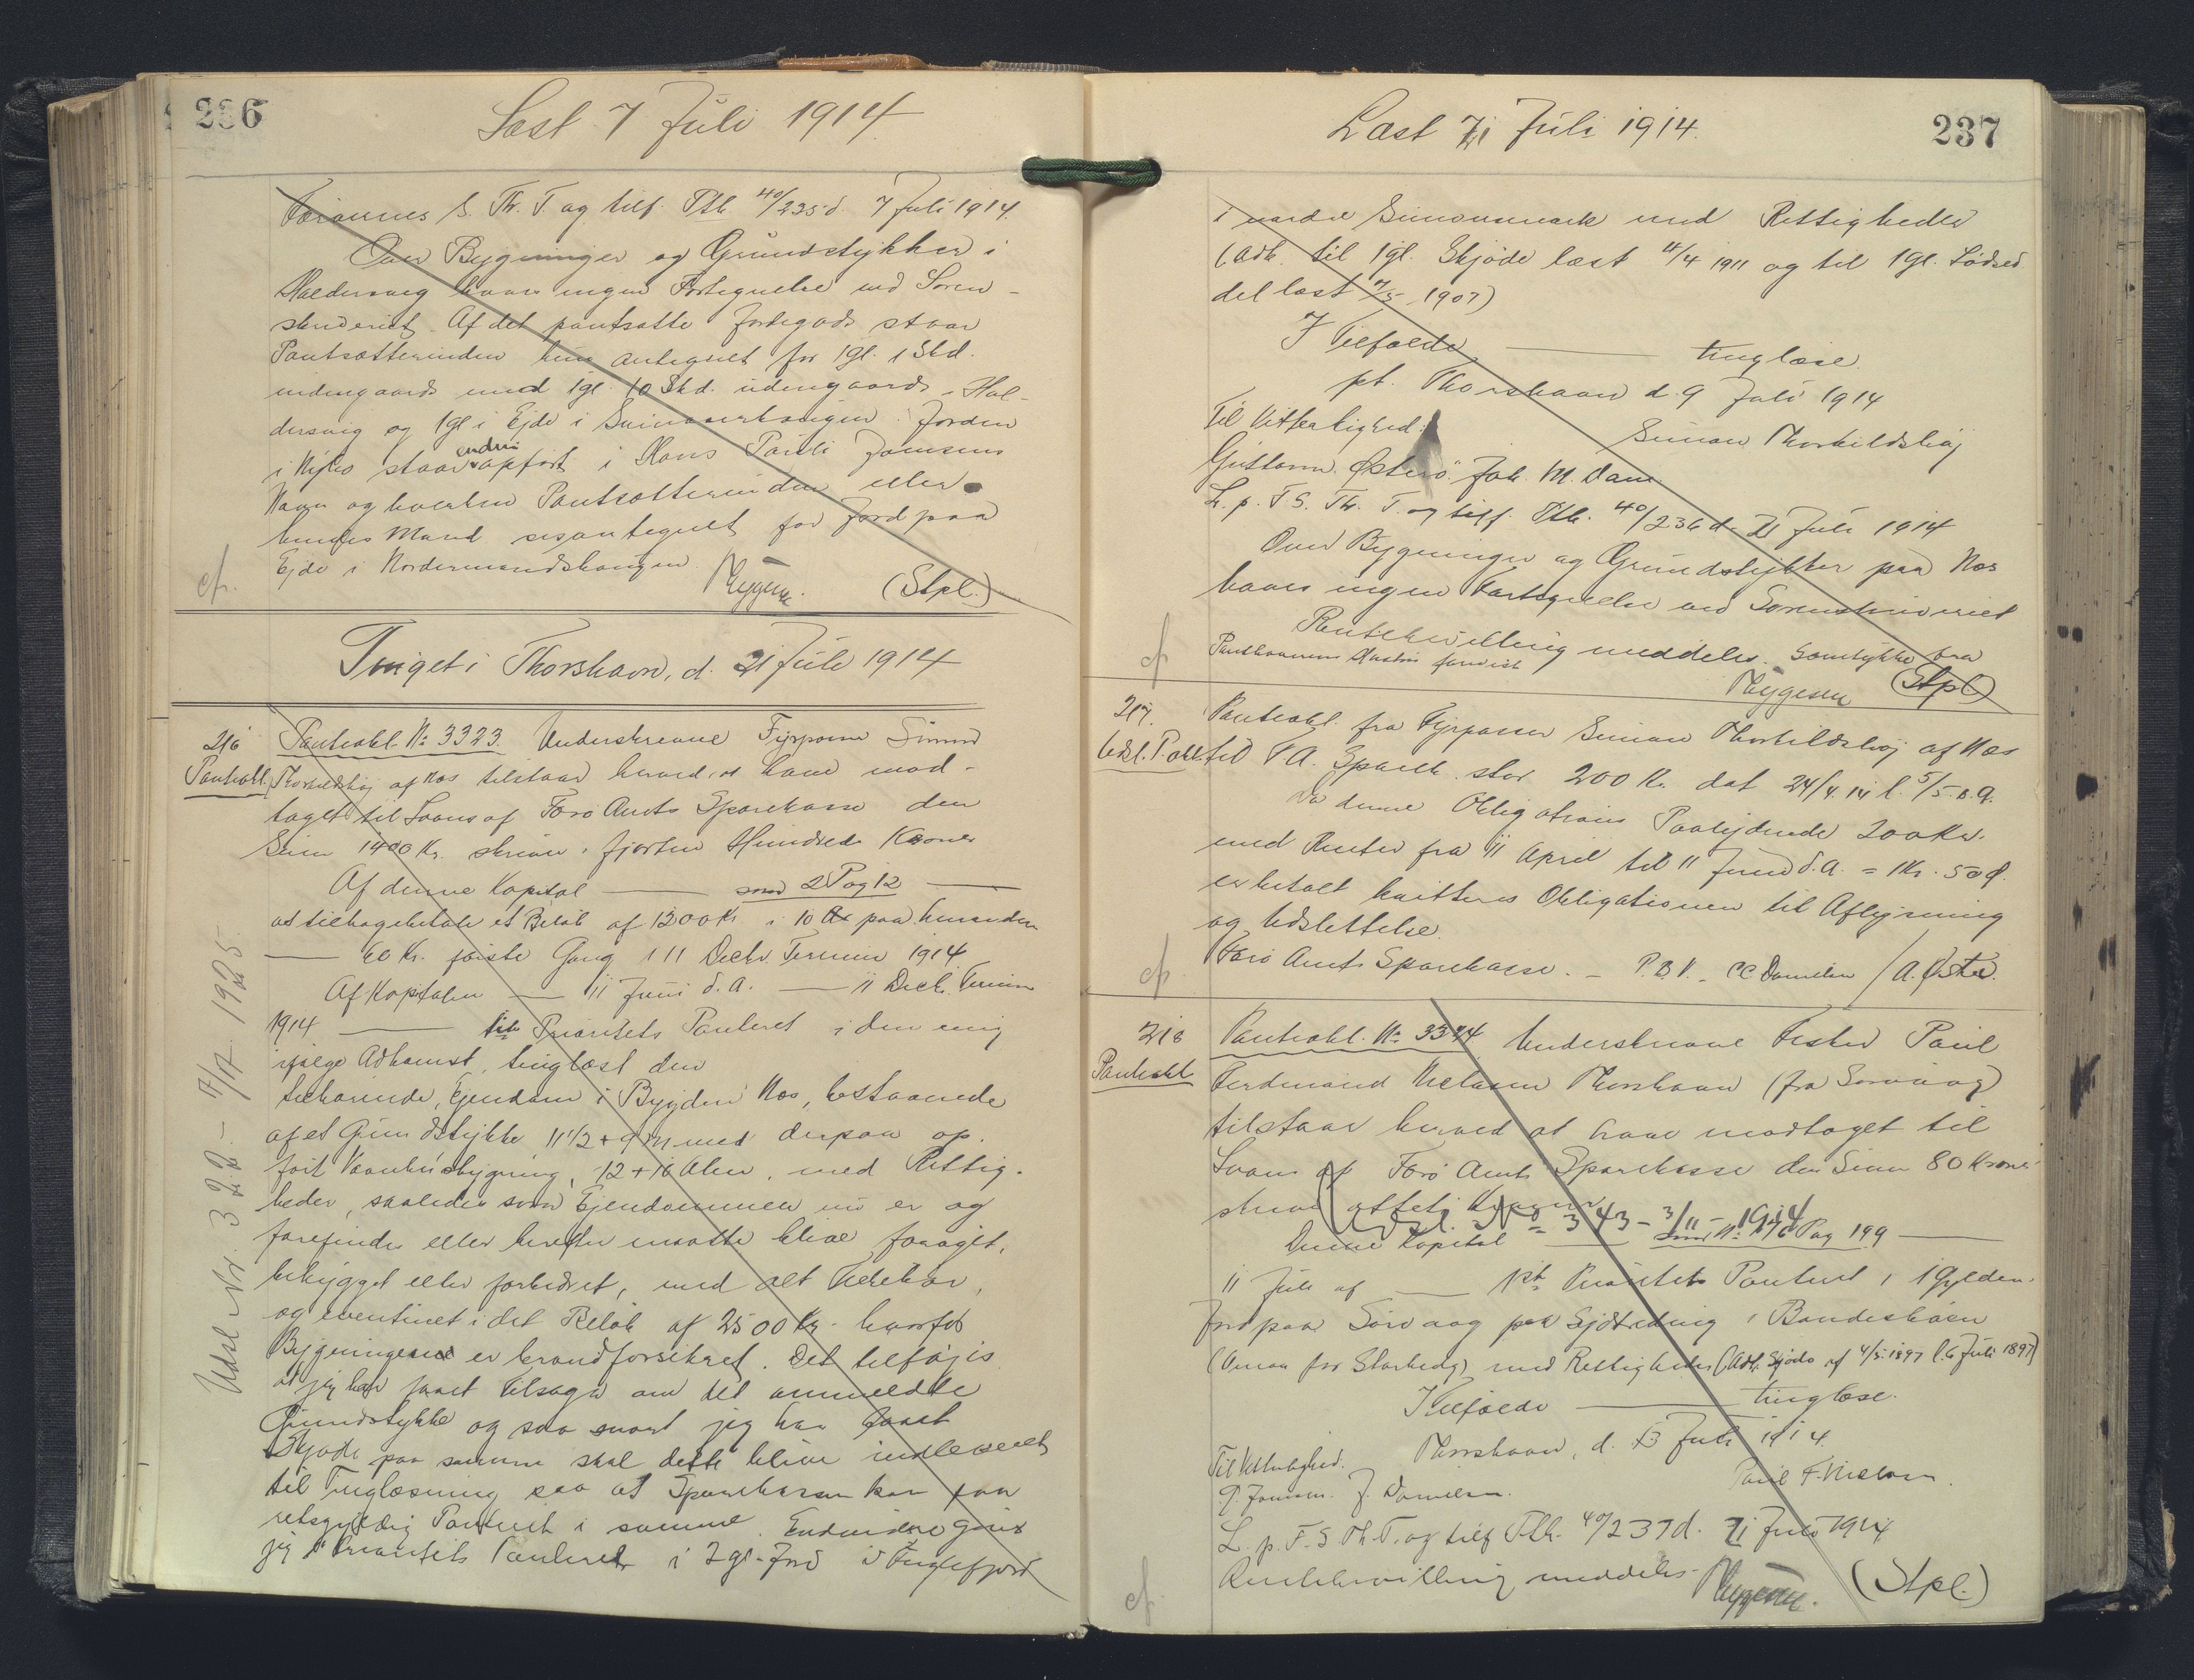 236
Læst 7 Juli 1914
Færøernes S. Th. T. og tilf. Ptb. 40/235 d. 7 Juli 1914.
Over Bygninger og Grundstykker i
Haldersvig haves ingen Fortegnelse ved Soren-
skriveriet. Af det pantsatte Jordegods staar
Pantsætterinden kun antegnet for 1 gl. 1 Skd.
indengaards med 1 gl. 10 Skd. udengaards, Hal-
dersvig og 1 gl i Ejde i Jorden
i staar endnu opført i Hans Pauli Joensens
Navn og hverken Pantsætterinden eller
hendes Mand ses antegnet for Jord paa
Ejde i Nordermandshougen
cf.
Thygesen. (Stpl.)
Tinget i Thorshavn, d. 21 Juli 1914
216
Pantobl. № 3323. Underskrevne Fyrpasser Simon
Pantobl. Thorkildshøj af Næs tilstaar herved at have mod-
taget til Laans af Færø Amts Sparekasse den
Sum 1400 Kr. skriver fjorten Hundrede Kroner
Af denne Kapital — som 2 Pag 12 —
at tilbagebetale et Beløb af 1200 Kr. i 10 Aar paa hinanden
— 60 Kr. første Gang i 11 Decbr. Termin 1914
Af Kapitalen — 11 Juni d. A. — 11 Decb. Termin
1914 — 1ste Prioritets Panteret i den mig
ifølge Adkomst, tinglæst den
tilhørende, Ejendom i Bygden Næs, bestaaende
af et Grundstykke 11 1/2 + 9 m med derpaa op-
ført Vaanhusbygning, 12 + 10 Alen, med Rettig-
heder, saaledes som Ejendommen nu er og
forefindes eller herefter maatte blive forøget,
bebygget eller forbedret, med alt Tilbehør,
og eventuelt i det Beløb af 2500 Kr. hvorfor
Bygningerne er brandforsikret. Det tilføjes
at jeg har faaet Tilsagn om det anmeldte
Grundstykke og saa snart jeg har faaet
Skjøde paa samme skal dette blive indleveret
til Tinglæsning saa at Sparekassen kan faa
retsgyldig Panteret i samme. Endvidere giver
jeg 1ste Prioritets Panteret i 2 gl. Jord i Fuglefjord
Udsl. Nr. 322 - 1925
237
Læst 21 Juli 1914.
i nordre Simonsmark med Rettigheder
(Adk. til 1 gl. Skjøde læst 11/4 1911 og til 1 gl. Lodsed-
del læst 1907)
I Tilfælde — tinglæse.
pt. Thorshavn d. 9 Juli 1914
Til Vitterlighed: Simon Thorkildshøj
Guttorm Østerø. Joh. M. Dam
L. p. F. S. Th. T. og tilf. Ptb. 40/236 d. 21 Juli 1914
Over Bygninger og Grundstykker paa Næs
haves ingen Fortegnelse ved Sorenskriveriet
Rentebevilling meddeles. Samtykke fra
Panthaverens Hustru
cf.
Thygesen (Stpl.)
217. Pantobl. fra Fyrpasser Simon Thorkildshøj af Næs
Udsl. P.obl. til F. A. Sparek. stor 200 Kr. dat 24/4 14 l. 5/5 s. A.
Da denne Obligations Paalydende 200 Kr.
med Renter fra 11 April til 11 Juni d. A. = 1 Kr. 50 Ø.
er betalt kvitteres Obligationen til Aflysning
og Udslettelse.
cf. Færø Amts Sparekasse. – P. B. V. – CC Danielsen / A. Østerø.
218 Pantobl. № 3324 Underskrevne Fisker Paul
Pantobl. Ferdinand Nielsen Thorshavn (fra Sørvaag)
tilstaar herved at have modtaget til
Laans af Færø Amts Sparekasse den Sum 80 Kroner
skriver otteti Kroner
Udsl. № 343 – 3/11 – 1914
Denne Kapital — som № 176 Pag 199 —
11 Juli af — 1ste Prioritets Panteret i 1 Gylden
Jord paa Sørvaag paa i
med Rettigheder (Adk. Skjøde af 4/5. 1897 l. 6 Juli 1897)
I Tilfælde — tinglæse.
Thorshavn, d. 13 Juli 1914.
Til Vitterlighed. Paul F. Nielsen.
P. Joensen. J. Danielsen.
L. p. F. S. Th. T. og tilf. Ptb. 40/237 d. 21 Juli 1914
cf. Rentebevilling meddeles. Thygesen. (Stpl.)